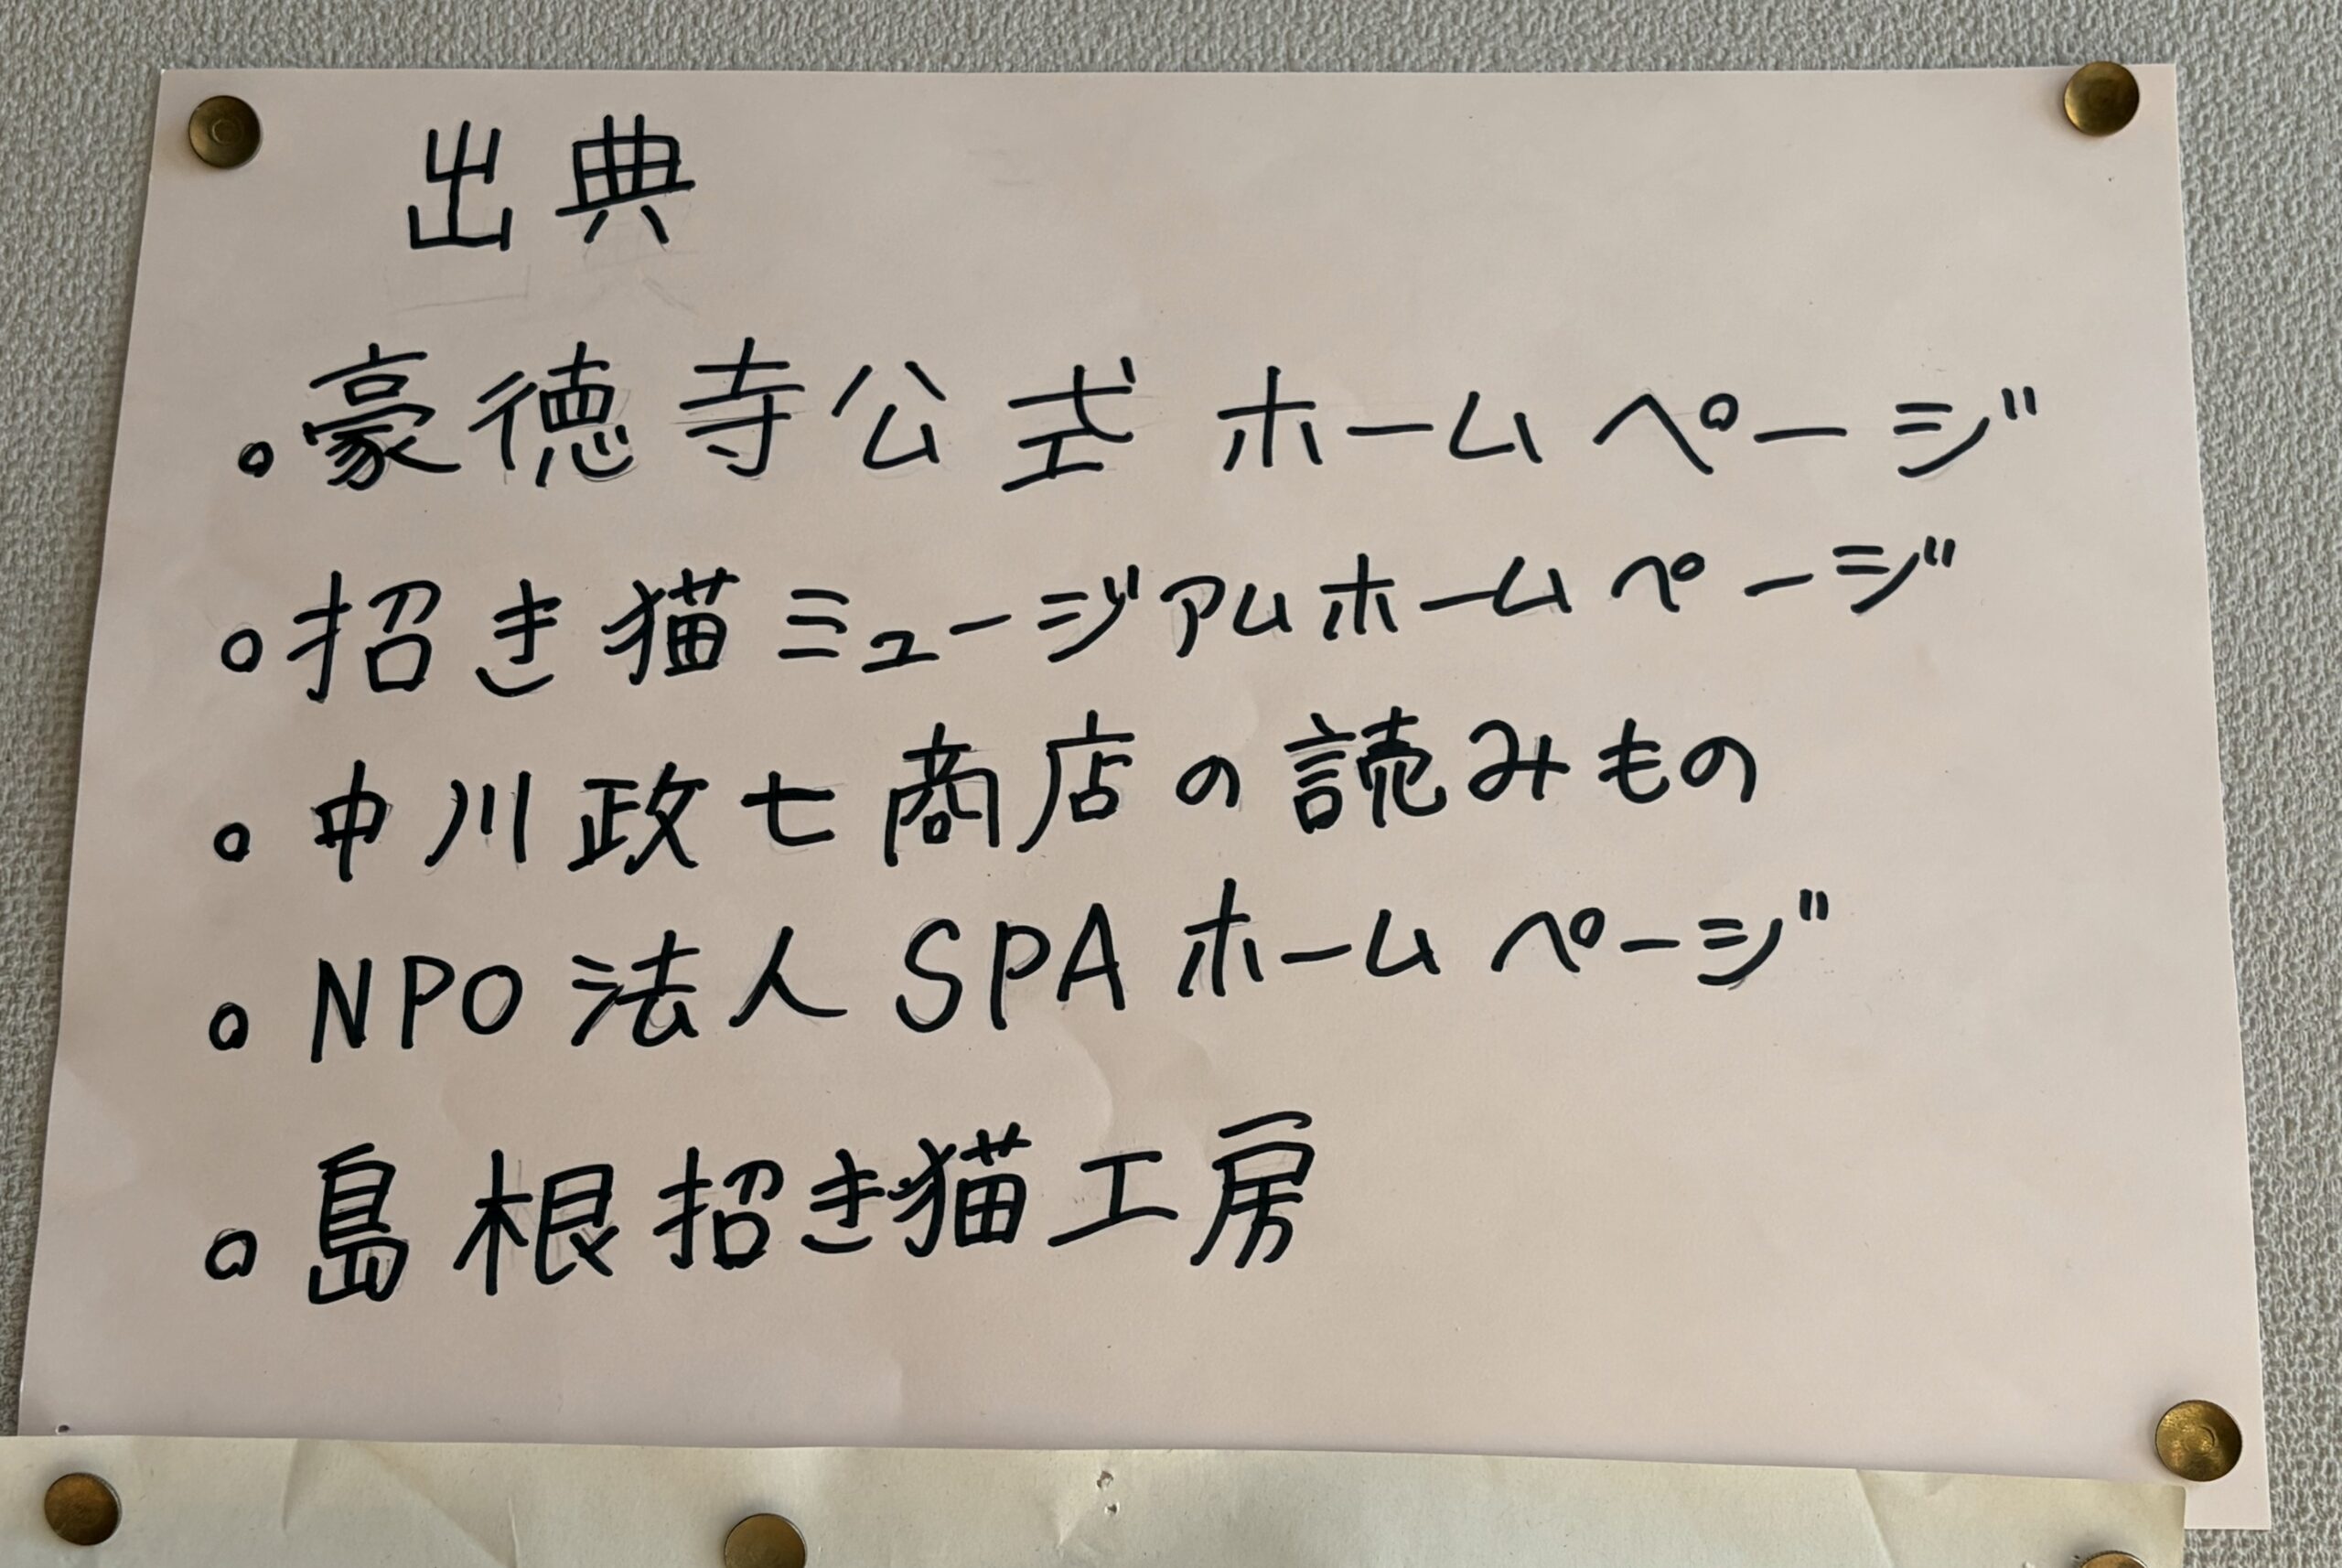 出典
。豪徳寺公式ホームページ
。招き猫ミュージアムホームページ
。中川政七商店の読みもの
。NPO法人SPAホームページ
。島根招き猫工房